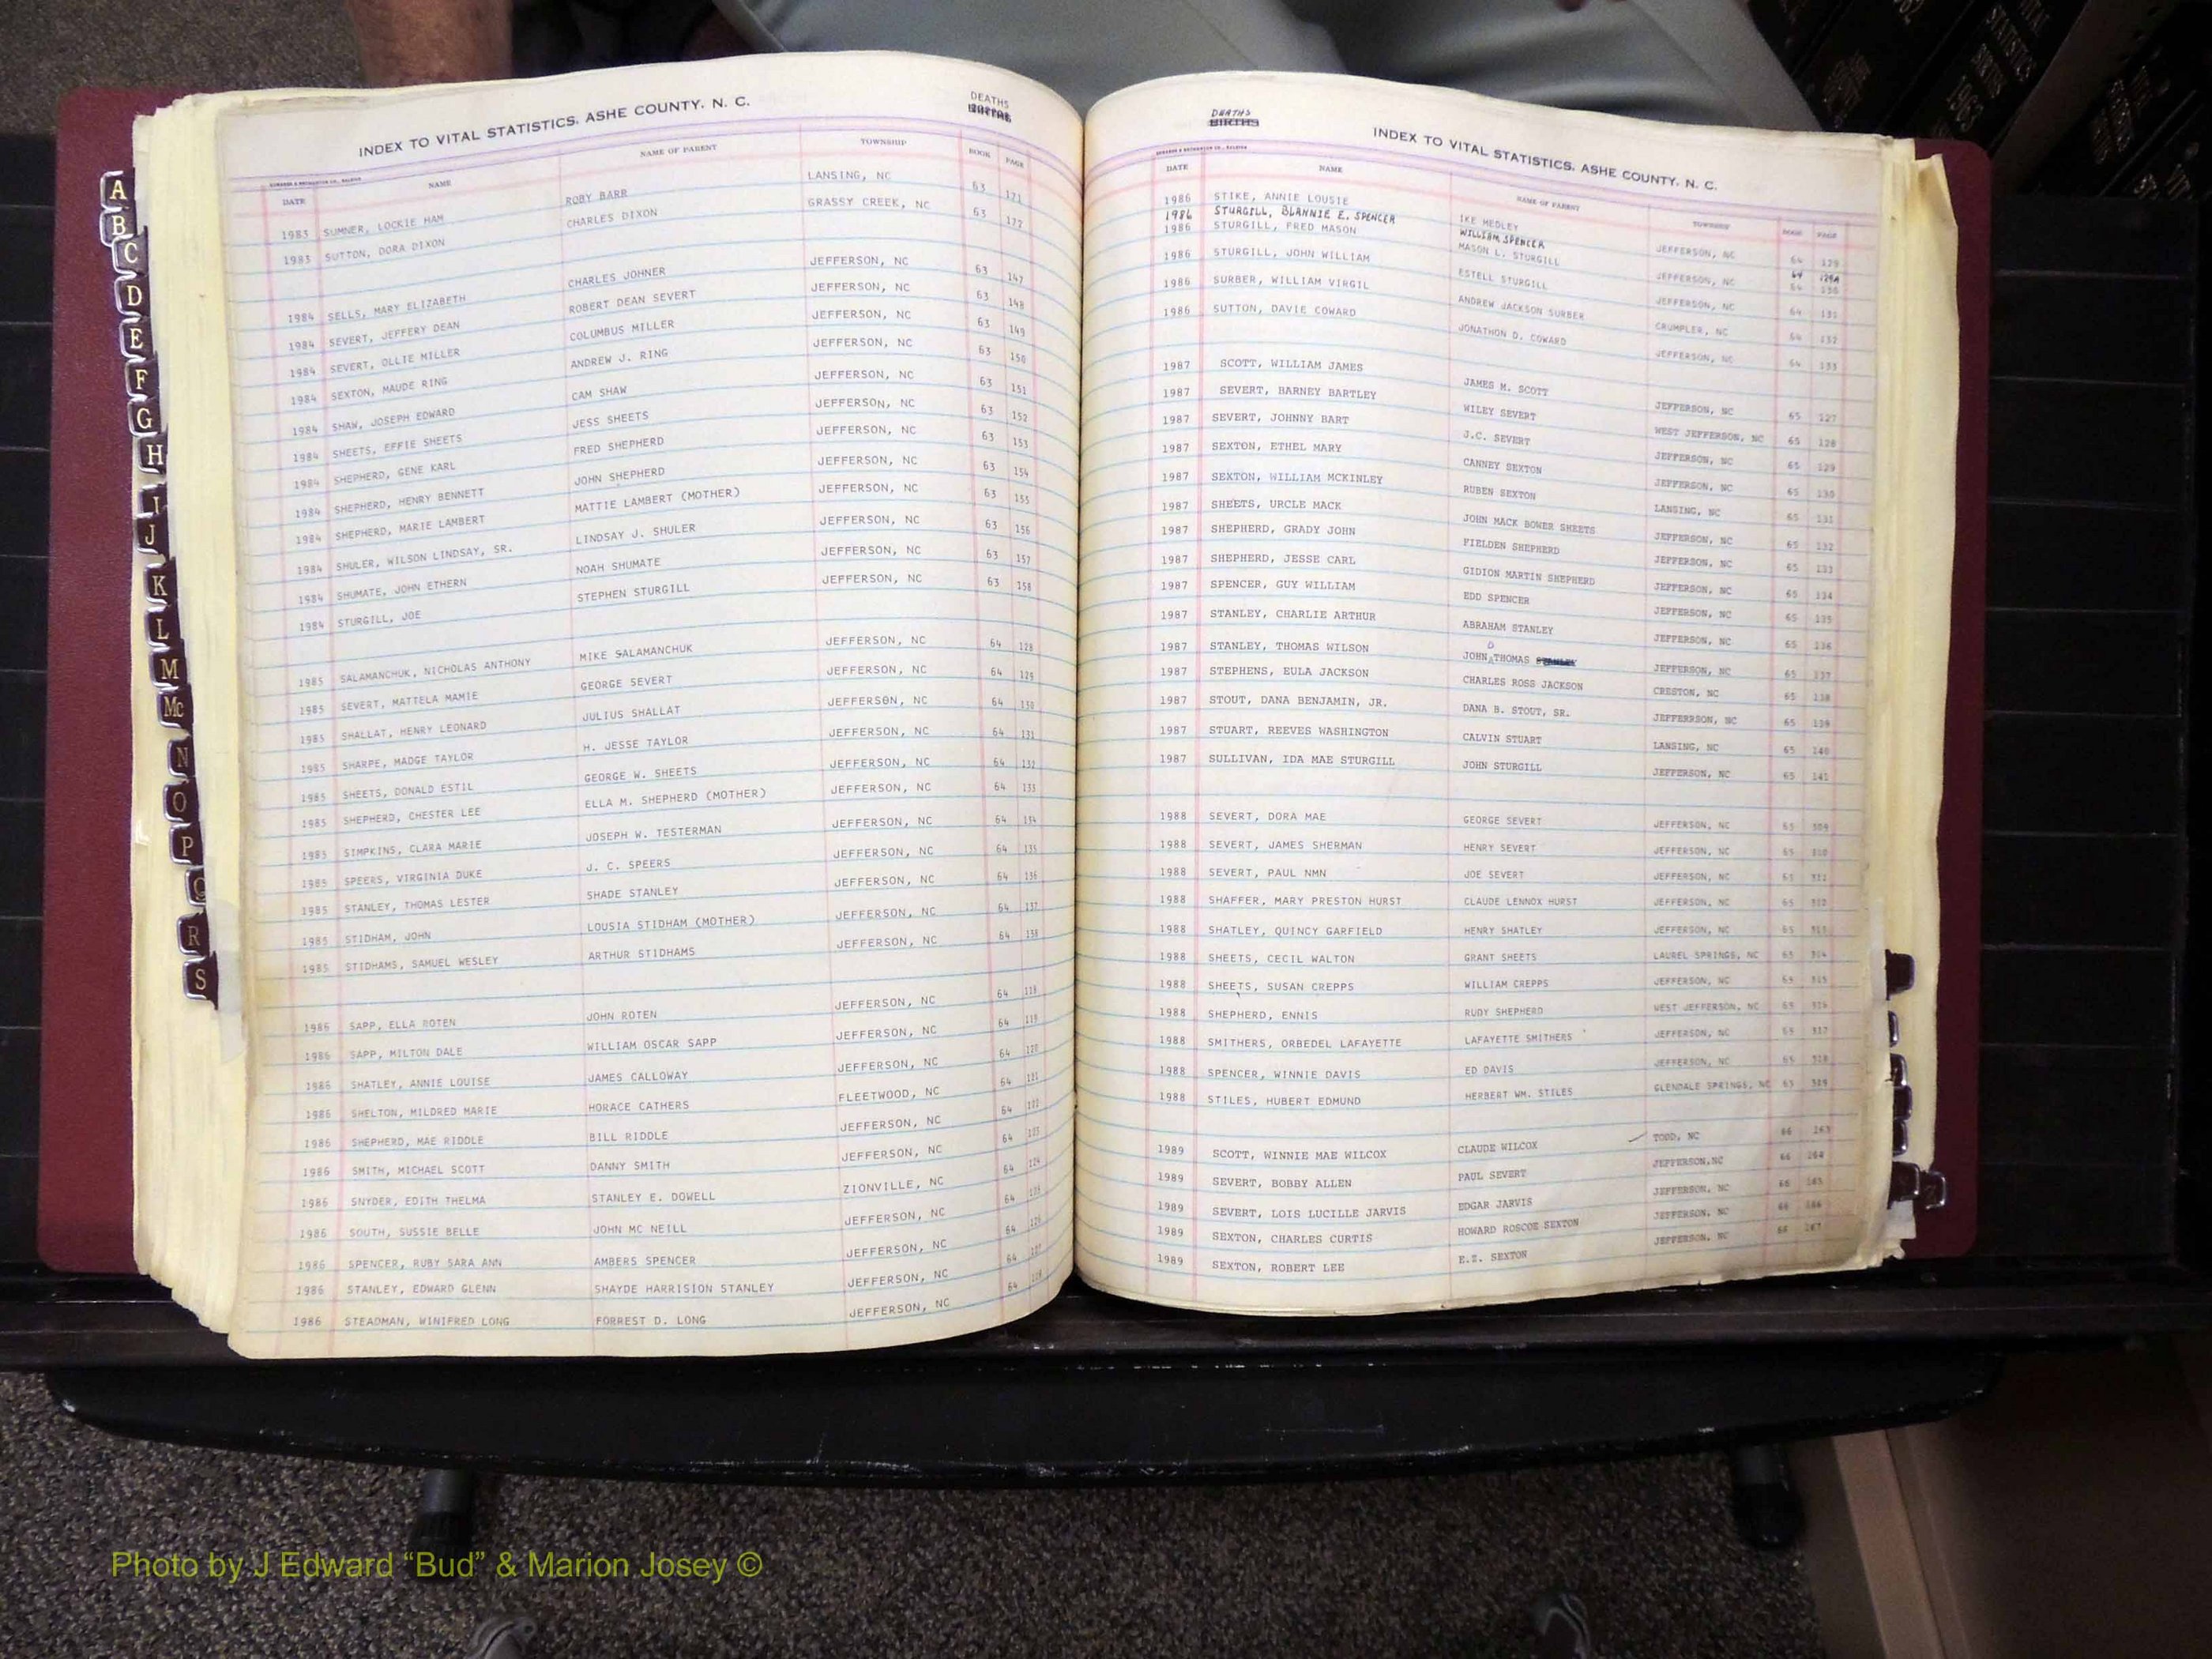 INDEX TO VITAL STATISTICS, ASHE COUNTY, N. C.
DEATHS
DATE NAME NAME OF PARENT TOWNSHIP BOOK PAGE
1983 SUMNER, LOCKIE HAM ROBY BARR LANSING, NC 63 171
1983 SUTTON, DORA DIXON CHARLES DIXON GRASSY CREEK, NC 63 172
1984 SELLS, MARY ELIZABETH CHARLES JOHNER JEFFERSON, NC 63 147
1984 SEVERT, JEFFERY DEAN ROBERT DEAN SEVERT JEFFERSON, NC 63 148
1984 SEVERT, OLLIE MILLER COLUMBUS MILLER JEFFERSON, NC 63 149
1984 SEXTON, MAUDE RING ANDREW J. RING JEFFERSON, NC 63 150
1984 SHAW, JOSEPH EDWARD CAM SHAW JEFFERSON, NC 63 151
1984 SHEETS, EFFIE SHEETS JESS SHEETS JEFFERSON, NC 63 152
1984 SHEPHERD, GENE KARL FRED SHEPHERD JEFFERSON, NC 63 153
1984 SHEPHERD, HENRY BENNETT JOHN SHEPHERD JEFFERSON, NC 63 154
1984 SHEPHERD, MARIE LAMBERT MATTIE LAMBERT (MOTHER) JEFFERSON, NC 63 155
1984 SHULER, WILSON LINDSAY, SR. LINDSAY J. SHULER JEFFERSON, NC 63 156
1984 SHUMATE, JOHN ETHERN NOAH SHUMATE JEFFERSON, NC 63 157
1984 STURGILL, JOE STEPHEN STURGILL JEFFERSON, NC 63 158
1985 SALAMANCHUK, NICHOLAS ANTHONY MIKE SALAMANCHUK JEFFERSON, NC 64 128
1985 SEVERT, MATTELA MAMIE GEORGE SEVERT JEFFERSON, NC 64 129
1985 SHALLAT, HENRY LEONARD JULIUS SHALLAT JEFFERSON, NC 64 130
1985 SHARPE, MADGE TAYLOR H. JESSE TAYLOR JEFFERSON, NC 64 131
1985 SHEETS, DONALD ESTIL GEORGE W. SHEETS JEFFERSON, NC 64 132
1985 SHEPHERD, CHESTER LEE ELLA M. SHEPHERD (MOTHER) JEFFERSON, NC 64 133
1985 SIMPKINS, CLARA MARIE JOSEPH W. TESTERMAN JEFFERSON, NC 64 134
1985 SPEERS, VIRGINIA DUKE J. C. SPEERS JEFFERSON, NC 64 135
1985 STANLEY, THOMAS LESTER SHADE STANLEY JEFFERSON, NC 64 136
1985 STIDHAM, JOHN LOUSIA STIDHAM (MOTHER) JEFFERSON, NC 64 137
1985 STIDHAMS, SAMUEL WESLEY ARTHUR STIDHAMS JEFFERSON, NC 64 138
1986 SAPP, ELLA ROTEN JOHN ROTEN JEFFERSON, NC 64 118
1986 SAPP, MILTON DALE WILLIAM OSCAR SAPP JEFFERSON, NC 64 119
1986 SHATLEY, ANNIE LOUISE JAMES CALLOWAY JEFFERSON, NC 64 120
1986 SHELTON, MILDRED MARIE HORACE CATHERS FLEETWOOD, NC 64 121
1986 SHEPHERD, MAE RIDDLE BILL RIDDLE JEFFERSON, NC 64 122
1986 SMITH, MICHAEL SCOTT DANNY SMITH JEFFERSON, NC 64 123
1986 SNYDER, EDITH THELMA STANLEY E. DOWELL ZIONVILLE, NC 64 124
1986 SOUTH, SUSSIE BELLE JOHN MC NEILL JEFFERSON, NC 64 125
1986 SPENCER, RUBY SARA ANN AMBERS SPENCER JEFFERSON, NC 64 126
1986 STANLEY, EDWARD GLENN SHAYDE HARRISION STANLEY JEFFERSON, NC 64 127
1986 STEADMAN, WINIFRED LONG FORREST D. LONG JEFFERSON, NC 64 128
DEATHS
BIRTHS
INDEX TO VITAL STATISTICS, ASHE COUNTY, N. C.
DATE NAME NAME OF PARENT TOWNSHIP BOOK PAGE
1986 STIKE, ANNIE LOUSIE IKE MEDLEY JEFFERSON, NC 64 129
1986 STURGILL, BLANNIE E. SPENCER WILLIAM SPENCER 64 129A
1986 STURGILL, FRED MASON MASON L. STURGILL JEFFERSON, NC 64 130
1986 STURGILL, JOHN WILLIAM ESTELL STURGILL JEFFERSON, NC 64 131
1986 SURBER, WILLIAM VIRGIL ANDREW JACKSON SURBER CRUMPLER, NC 64 132
1986 SUTTON, DAVIE COWARD JONATHON D. COWARD JEFFERSON, NC 64 133
1987 SCOTT, WILLIAM JAMES JAMES M. SCOTT JEFFERSON, NC 65 127
1987 SEVERT, BARNEY BARTLEY WILEY SEVERT WEST JEFFERSON, NC 65 128
1987 SEVERT, JOHNNY BART J.C. SEVERT JEFFERSON, NC 65 129
1987 SEXTON, ETHEL MARY CANNEY SEXTON JEFFERSON, NC 65 130
1987 SEXTON, WILLIAM MCKINLEY RUBEN SEXTON LANSING, NC 65 131
1987 SHEETS, URCLE MACK JOHN MACK BOWER SHEETS JEFFERSON, NC 65 132
1987 SHEPHERD, GRADY JOHN FIELDEN SHEPHERD JEFFERSON, NC 65 133
1987 SHEPHERD, JESSE CARL GIDION MARTIN SHEPHERD JEFFERSON, NC 65 134
1987 SPENCER, GUY WILLIAM EDD SPENCER JEFFERSON, NC 65 135
1987 STANLEY, CHARLIE ARTHUR ABRAHAM STANLEY JEFFERSON, NC 65 136
1987 STANLEY, THOMAS WILSON JOHN THOMAS STANLEY JEFFERSON, NC 65 137
1987 STEPHENS, EULA JACKSON CHARLES ROSS JACKSON CRESTON, NC 65 138
1987 STOUT, DANA BENJAMIN, JR. DANA B. STOUT, SR. JEFFERRSON, NC 65 139
1987 STUART, REEVES WASHINGTON CALVIN STUART LANSING, NC 65 140
1987 SULLIVAN, IDA MAE STURGILL JOHN STURGILL JEFFERSON, NC 65 141
1988 SEVERT, DORA MAE GEORGE SEVERT JEFFERSON, NC 65 309
1988 SEVERT, JAMES SHERMAN HENRY SEVERT JEFFERSON, NC 65 310
1988 SEVERT, PAUL NMN JOE SEVERT JEFFERSON, NC 65 311
1988 SHAFFER, MARY PRESTON HURST CLAUDE LENNOX HURST JEFFERSON, NC 65 312
1988 SHATLEY, QUINCY GARFIELD HENRY SHATLEY JEFFERSON, NC 65 313
1988 SHEETS, CECIL WALTON GRANT SHEETS LAUREL SPRINGS, NC 65 314
1988 SHEETS, SUSAN CREPPS WILLIAM CREPPS JEFFERSON, NC 65 315
1988 SHEPHERD, ENNIS RUDY SHEPHERD WEST JEFFERSON, NC 65 316
1988 SMITHERS, ORBEDEL LAFAYETTE LAFAYETTE SMITHERS JEFFERSON, NC 65 317
1988 SPENCER, WINNIE DAVIS ED DAVIS JEFFERSON, NC 65 318
1988 STILES, HUBERT EDMUND HERBERT WM. STILES GLENDALE SPRINGS, NC 65
1989 SCOTT, WINNIE MAE WILCOX CLAUDE WILCOX TODD, NC 66 263
1989 SEVERT, BOBBY ALLEN PAUL SEVERT JEFFERSON,NC 66 264
1989 SEVERT, LOIS LUCILLE JARVIS EDGAR JARVIS JEFFERSON, NC 66 265
1989 SEXTON, CHARLES CURTIS HOWARD ROSCOE SEXTON JEFFERSON, NC 66 266
1989 SEXTON, ROBERT LEE E.Z. SEXTON JEFFERSON, NC 66 267
A
B
C
D
E
F
G
H
I
J
K
L
M
Mc
N
O
P
Q
R
S
VITAL STATISTICS
1963
Photo by J Edward “Bud” & Marion Josey ©